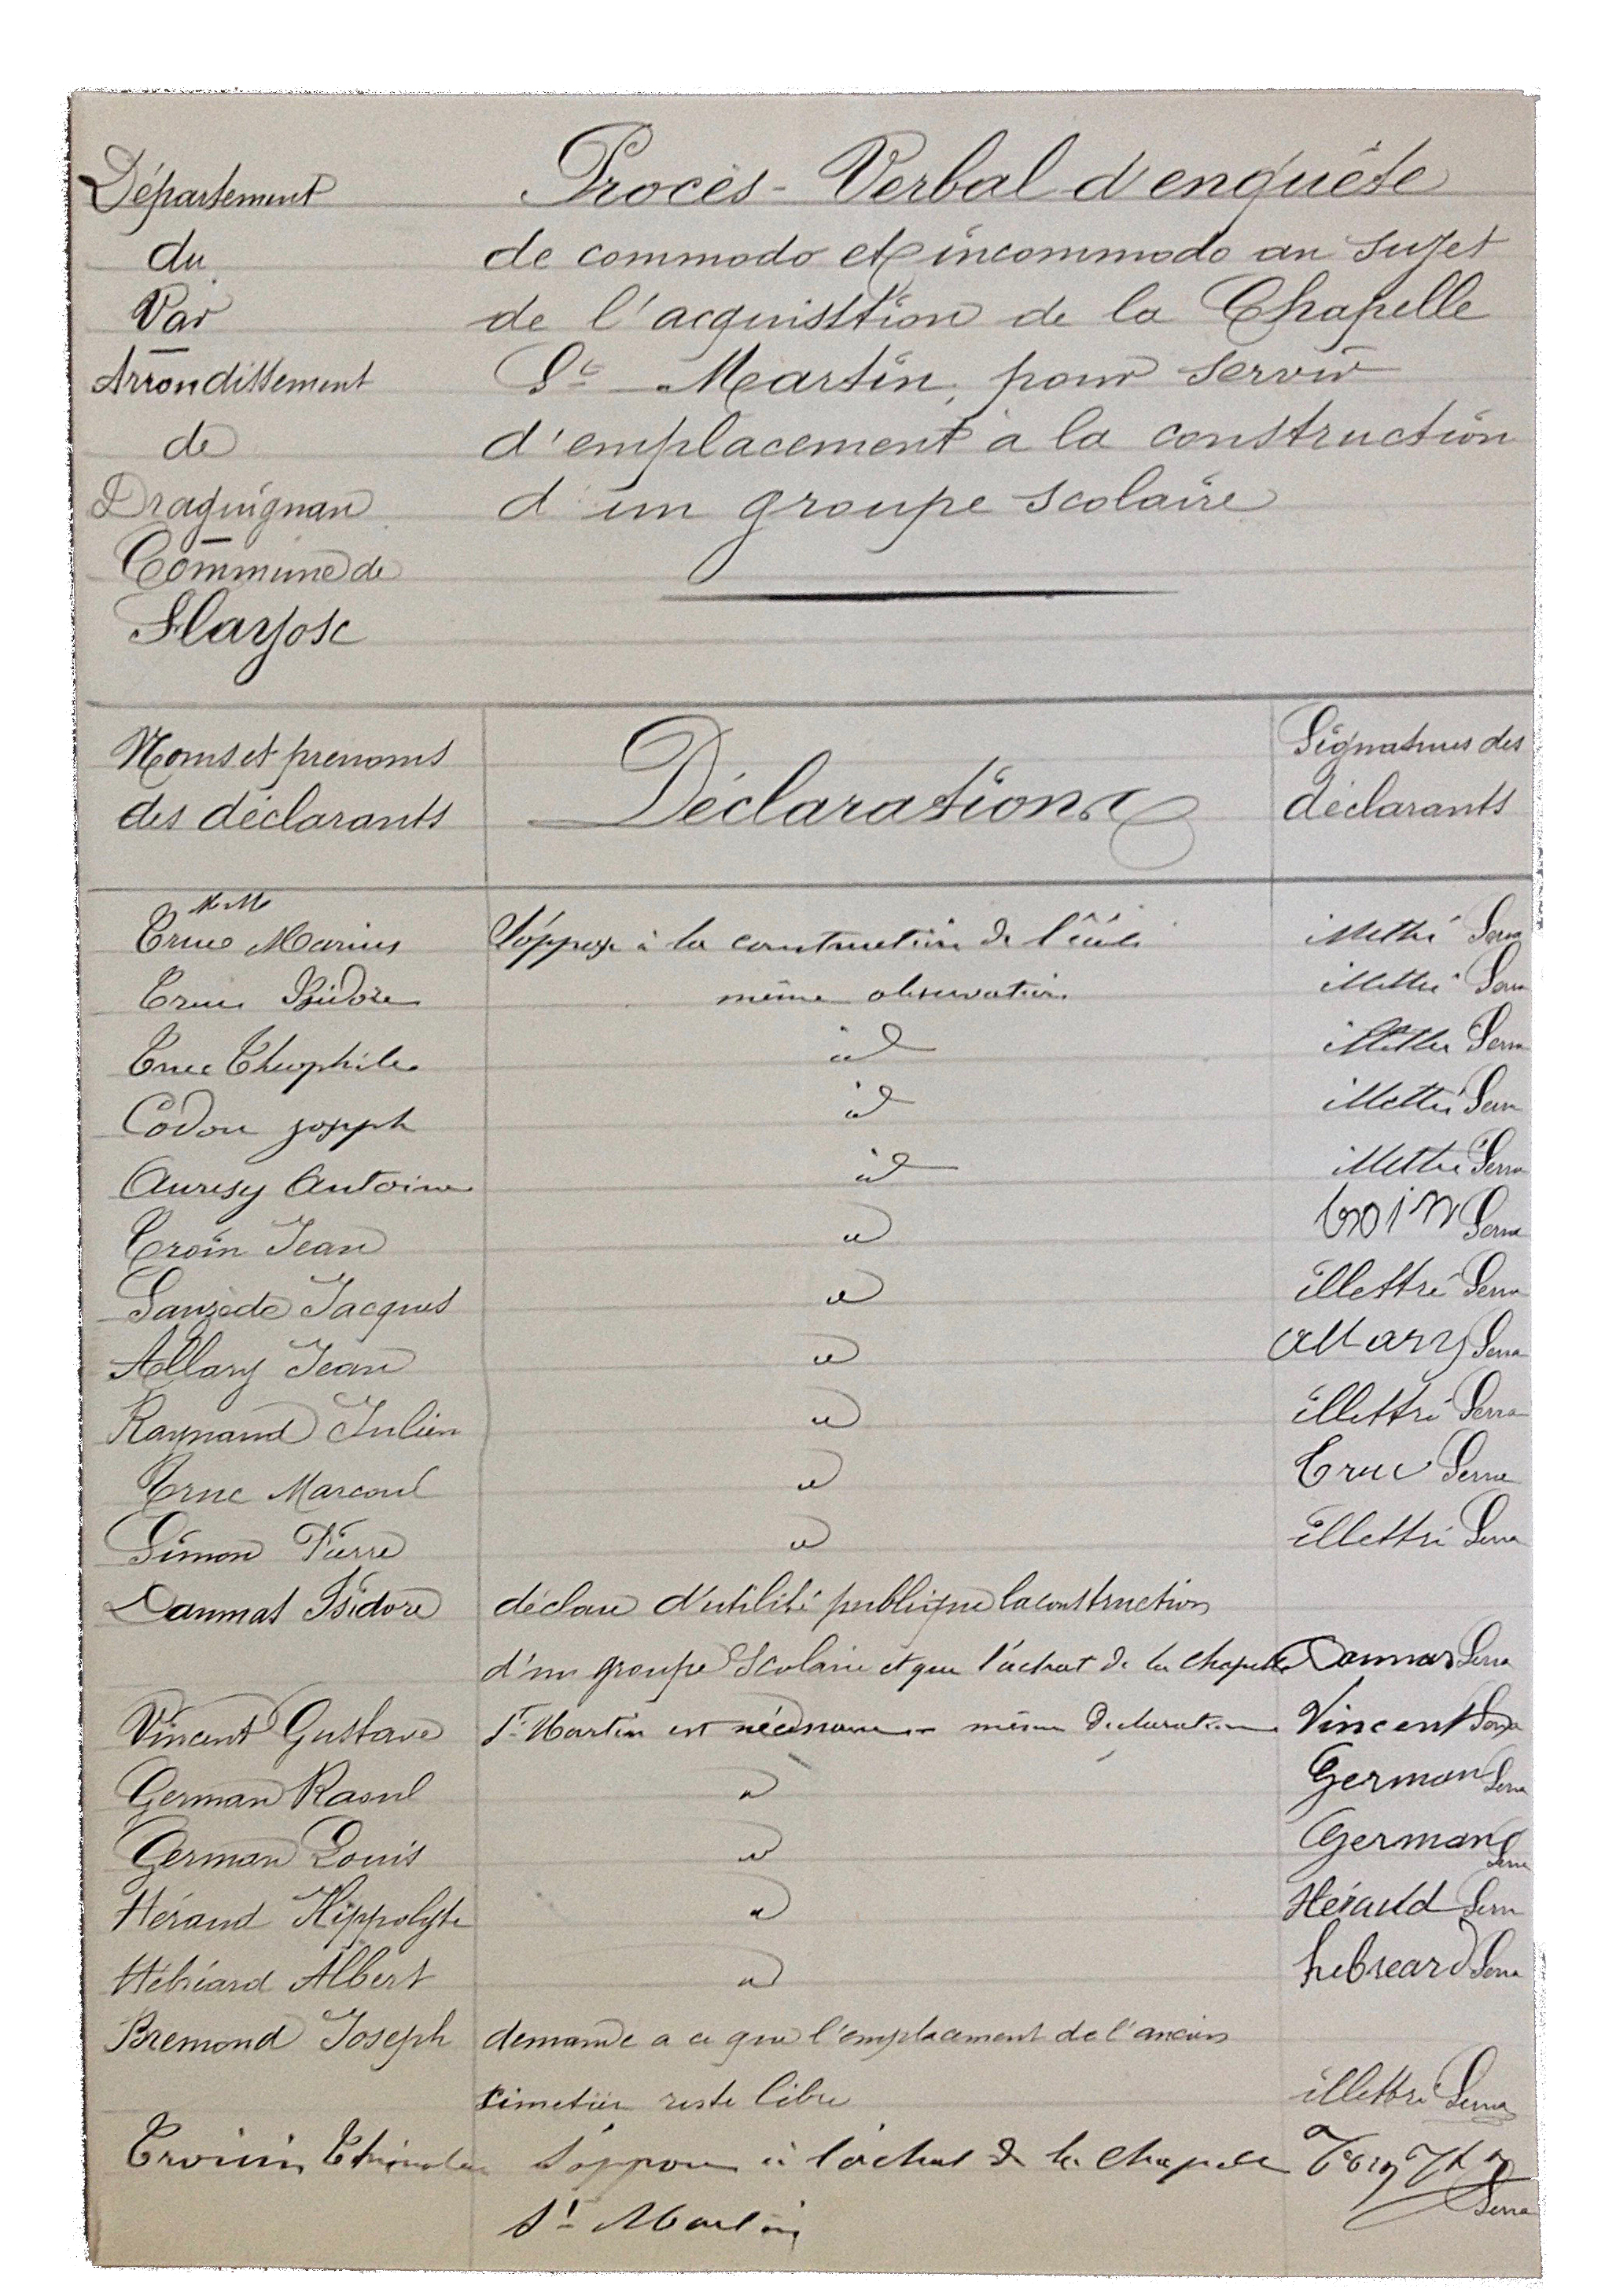 Département
du
Var
Arrondissement
de
Draguignan
Commune de
Flayosc
Procès-Verbal d'enquête
de commodo et incommodo au sujet
de l'acquisition de la Chapelle
St Martin, pour servir
d'emplacement à la construction
d'un groupe scolaire
Noms et prenoms
des déclarants
Déclarations
Signatures des
déclarants
M.M.
Truc Marius S'oppose à la construction de l'école illettré Serra
Truc Isidore même observation illettré Serra
Truc Théophile id illettré Serra
Codou joseph id illettré Serra
Antoine id illettré Serra
Troin Jean id troin Serra
Sauzède Jacques id illettré Serra
Allary Jean id allary Serra
Raynaud Julien id illettré Serra
Truc Marcoul id Truc Serra
Simon Pierre id illettré Serra
Daumas Isidore déclare d'utilité publique la construction
d'un groupe Scolaire et que l'achat de la chapelle Daumas Serra
Vincent Gustave St Martin est nécessaire même déclaration Vincent Serra
German Raoul id German Serra
German Louis id German Serra
Héraud Hippolyte id Héraud Serra
Hébréard Albert id hebreard Serra
Bremond Joseph demande a ce que l'emplacement de l'ancien
cimetière reste libre illettré Serra
S'oppose à l'achat de la chapelle
St Martin Serra